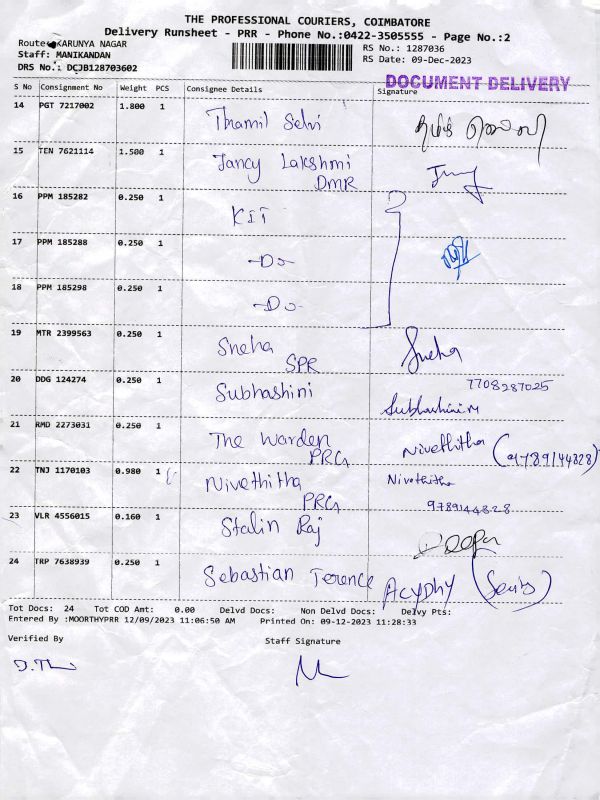 THE PROFESSIONAL COURIERS, COIMBATORE
Delivery Runsheet - PRR - Phone No.:0422-3505555 - Page No.:2
Route: KARUNYA NAGAR
Staff: MANIKANDAN
DRS No.: DCJB128703602
RS No.: 1287036
RS Date: 09-Dec-2023
DOCUMENT DELIVERY
S No Consignment No Weight PCS Consignee Details Signature
14 PGT 7217002 1.800 1 Thamil Selvi
15 TEN 7621114 1.500 1 Jancy Lakshmi
DMR
16 PPM 185282 0.250 1 KIT
17 PPM 185288 0.250 1 -Do-
18 PPM 185298 0.250 1 -Do-
19 MTR 2399563 0.250 1 Sneha Sneha
SPR
20 DDG 124274 0.250 1 Subhashini 7708287025
Subhashini M
21 RMD 2273031 0.250 1 The Warden Nivethitha (9789144828)
PRG
22 TNJ 1170103 0.980 1 Nivethitha Nivethitha
PRG 9789144828
23 VLR 4556015 0.160 1 Stalin Raj
24 TRP 7638939 0.250 1 Sebastian Terence
Tot Docs: 24 Tot COD Amt: 0.00 Delvd Docs: Non Delvd Docs: Delvy Pts:
Entered By :MOORTHYPRR 12/09/2023 11:06:50 AM Printed On: 09-12-2023 11:28:33
Verified By Staff Signature